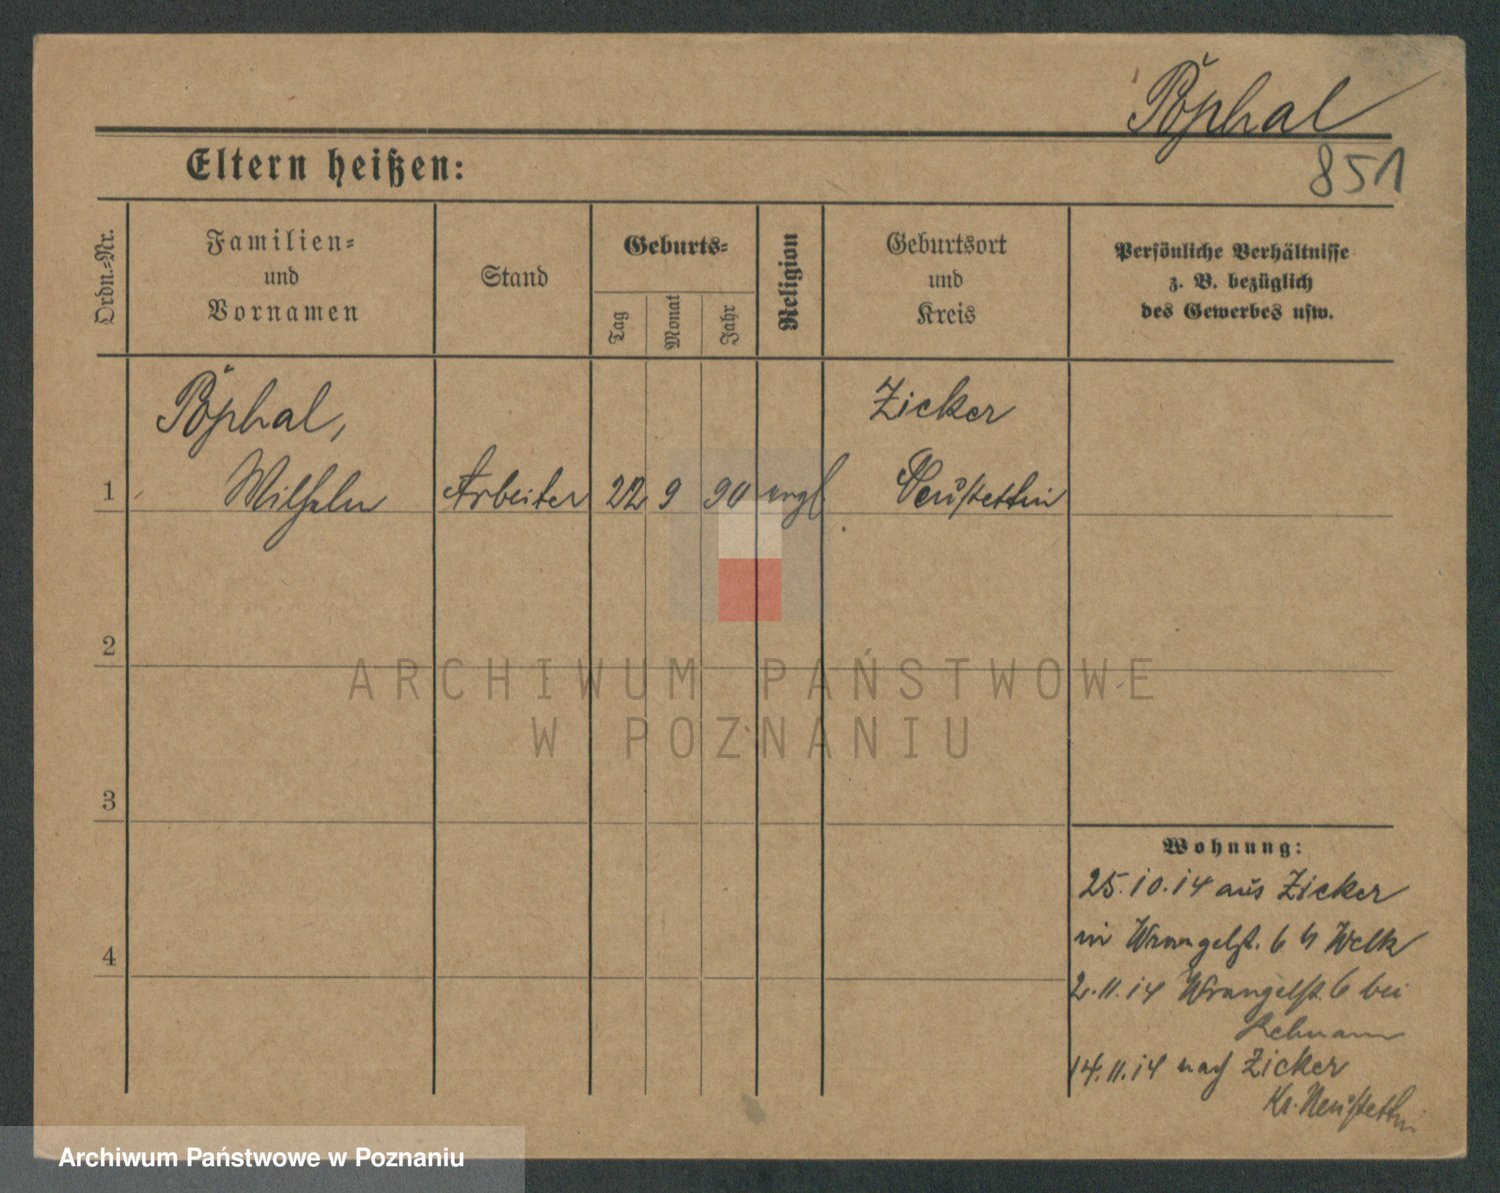 Pöphal
851
Eltern heißen:
Ordn.-Nr.
Familien-
und
Vornamen
Stand
Geburts-
Tag
Monat
Jahr
Religion
Geburtsort
und
Kreis
Persönliche Verhältnisse
z. B. bezüglich
des Gewerbes usw.
Pöphal,
Zicker
1 Wilhelm Arbeiter 22 9 90 evgl. Neustettin
2
3
4
ARCHIWUM PAŃSTWOWE
W POZNANIU
Wohnung:
25.10.14 aus Zicker
in Wrangelst. 6 b Welk
2.11.14 Wrangelst 6 bei
14.11.14 nach Zicker
Kr. Neustettin
Archiwum Państwowe w Poznaniu